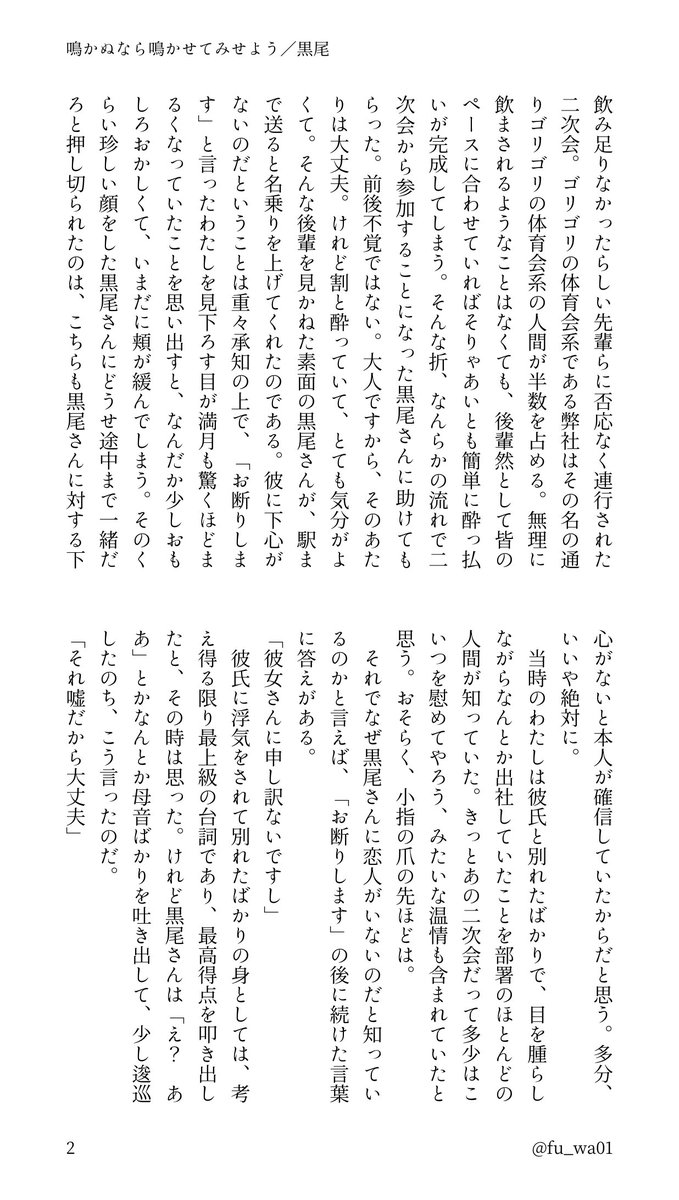 鳴かぬなら鳴かせてみせよう／黒尾
飲み足りなかったらしい先輩らに否応なく連行された
二次会。ゴリゴリの体育会系である弊社はその名の通
りゴリゴリの体育会系の人間が半数を占める。無理に
飲まされるようなことはなくても、後輩然として皆の
ペースに合わせていればそりゃあいとも簡単に酔っ払
いが完成してしまう。そんな折、なんらかの流れで二
次会から参加することになった黒尾さんに助けても
らった。前後不覚ではない。大人ですから、そのあた
りは大丈夫。けれど割と酔っていて、とても気分がよ
くて。そんな後輩を見かねた素面の黒尾さんが、駅ま
で送ると名乗りを上げてくれたのである。彼に下心が
ないのだということは重々承知の上で、「お断りしま
す」と言ったわたしを見下ろす目が満月も驚くほどま
るくなっていたことを思い出すと、なんだか少しおも
しろおかしくて、いまだに頬が緩んでしまう。そのく
らい珍しい顔をした黒尾さんにどうせ途中まで一緒だ
ろと押し切られたのは、こちらも黒尾さんに対する下
心がないと本人が確信していたからだと思う。多分、
いいや絶対に。
　当時のわたしは彼氏と別れたばかりで、目を腫らし
ながらなんとか出社していたことを部署のほとんどの
人間が知っていた。きっとあの二次会だって多少はこ
いつを慰めてやろう、みたいな温情も含まれていたと
思う。おそらく、小指の爪の先ほどは。
　それでなぜ黒尾さんに恋人がいないのだと知ってい
るのかと言えば、「お断りします」の後に続けた言葉
に答えがある。
「彼女さんに申し訳ないですし」
　彼氏に浮気をされて別れたばかりの身としては、考
え得る限り最上級の台詞であり、最高得点を叩き出し
たと、その時は思った。けれど黒尾さんは「え？　あ
あ」とかなんとか母音ばかりを吐き出して、少し逡巡
したのち、こう言ったのだ。
「それ嘘だから大丈夫」
2
@fu_wa01